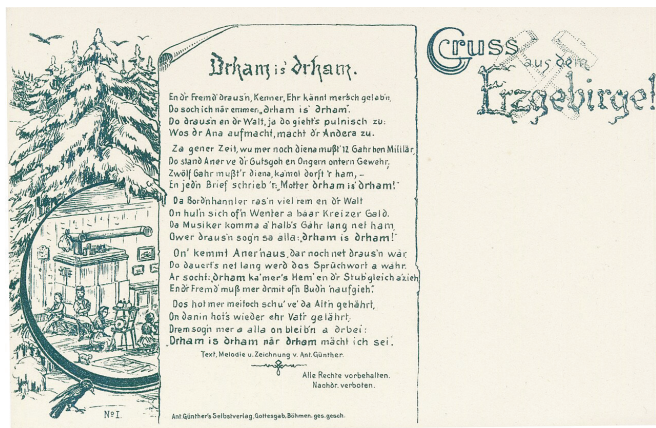 Drham is' drham.
En dr Fremd draus'n, Kenner, Ehr kännt mersch gelab'n,
Do soch ich när emmer, „drham is' drham“.
Do draus'n en dr Walt, ja do gieht's pulnisch zu:
Wos dr Ana aufmacht, macht dr Andera zu.
Za gener Zeit, wu mer noch diena mußt' 12 Gahr ben Militär,
Do stand Aner ve dr Gutsgoh en Ongern ontern Gewehr,
Zwölf Gahr mußt'r diena, ka'mol dorft 'r ham, –
En jed'n Brief schrieb 'r: „Motter drham is' drham!“
Da Bord'nhannler ras'n viel rem en dr Walt
On hul'n sich of'n Wenter a baar Kreizer Gald.
Da Musiker komma a' halb's Gahr lang net ham,
Ower draus'n sog'n sa alla: „drham is drham!“
On' kemmt Aner'naus, dar noch net draus'n wär
Do dauert's net lang werd dos Sprüchwort a wahr.
Ar socht: drham ka'mer's Hem' en dr Stub' gleich a'zieh
En dr Fremd' muß mer drmit of'n Bud'n 'naufgieh'.
Dos hot mer meitoch schu' ve' da Alt'n gehährt,
On danin hot's wieder ehr Vat'r gelährt,
Drem sog'n mer a alla on bleib'n a drbei:
„Drham is drham när drham mächt ich sei'.
Text, Melodie u. Zeichnung v. Ant. Günther.
Alle Rechte vorbehalten.
Nachdr. verboten.
No I.
Ant Günther's Selbstverlag, Gottesgab, Böhmen. ges. gesch.
Gruss
aus dem
Erzgebirge!